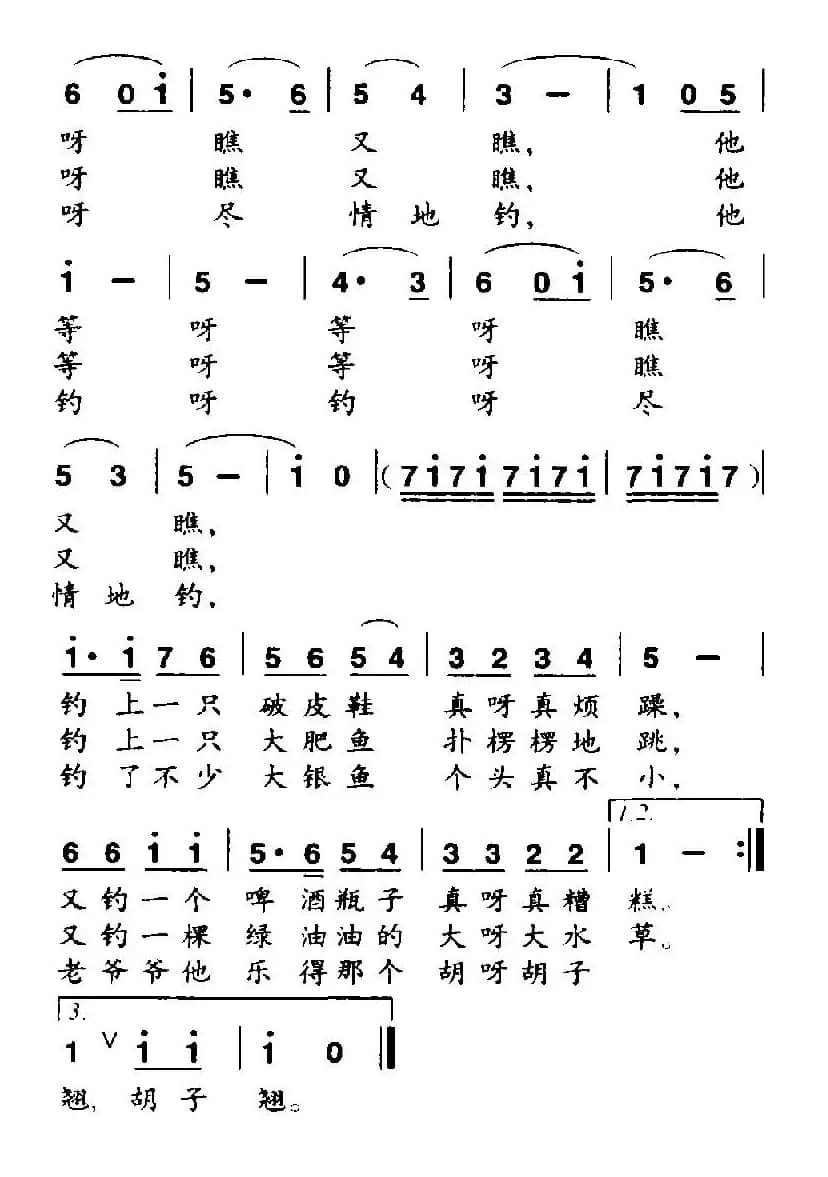 6 0 i | 5· 6 | 5 4 | 3 — | 1 0 5 |
呀 瞧 又 瞧, 他
呀 瞧 又 瞧, 他
呀 尽 情 地 钓, 他
i — | 5 — | 4· 3 | 6 0 i | 5· 6 |
等 呀 等 呀 瞧
等 呀 等 呀 瞧
钓 呀 钓 呀 尽
5 3 | 5 — | i 0 | (7i7i 7i7i | 7i7i7) |
又 瞧,
又 瞧,
情 地 钓,
i· i 7 6 | 5 6 5 4 | 3 2 3 4 | 5 — |
钓 上 一 只 破 皮 鞋 真 呀 真 烦 躁,
钓 上 一 只 大 肥 鱼 扑 楞 楞 地 跳,
钓 了 不 少 大 银 鱼 个 头 真 不 小,
1.2.
6 6 i i | 5· 6 5 4 | 3 3 2 2 | 1 — :‖
又 钓 一 个 啤 酒 瓶 子 真 呀 真 糟 糕。
又 钓 一 棵 绿 油 油 的 大 呀 大 水 草。
老 爷 爷 他 乐 得 那 个 胡 呀 胡 子
3.
1 ∨ i i | i 0 ‖
翘, 胡 子 翘。